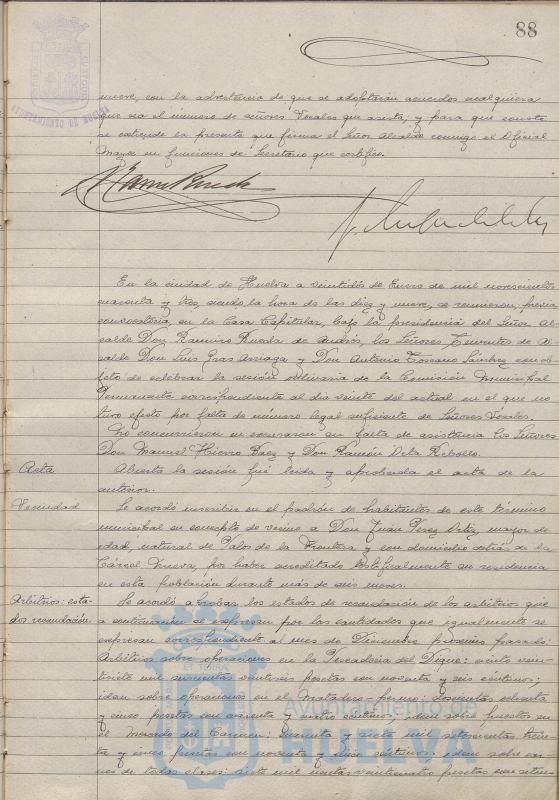 88
nueve, con la advertencia de que se adoptarán acuerdos cualquiera
que sea el número de señores Vocales que asista, y para que conste
se extiende la presente que firma el Señor Alcalde conmigo el Oficial
Mayor en funciones de Secretario que certifico.
En la ciudad de Huelva a veintidós de Enero de mil novecientos
cuarenta y tres, siendo la hora de las diez y nueve, se reunieron, previa
convocatoria, en la Casa Capitular, bajo la presidencia del Señor Al-
calde Don Ramiro Rueda de Andrés, los Señores Tenientes de Al-
calde Don Luis Gras Arriaga y Don Antonio Toscano Sánchez con ob-
jeto de celebrar la sesión ordinaria de la Comisión Municipal
Permanente correspondiente al día veinte del actual en el que no
tuvo efecto por falta de número legal suficiente de Señores Vocales.
No concurrieron ni excusaron su falta de asistencia los Señores
Don Manuel Hierro Baez y Don Ramón Vila Rebollo.
Acta Abierta la sesión fué leida y aprobada el acta de la
anterior.
Vecindad Se acordó inscribir en el padrón de habitantes de este término
municipal en concepto de vecino a Don Juán Pérez Ortiz, mayor de
edad, natural de Palos de la Frontera y con domicilio detrás de la
Cárcel Nueva, por haber acreditado testificalmente su residencia
en esta población durante más de seis meses.
Arbitrios: esta-
dos recaudación. Se acordó aprobar los estados de recaudación de los arbitrios que
a continuación se expresan por las cantidades que igualmente se
expresan correspondiente al mes de Diciembre próximo pasado:
Arbitrios sobre operaciones en la Pescadería del Dique: ciento vein-
tisiete mil veintiseis pesetas con noventa y seis céntimos;
idem sobre operaciones en el Matadero: doscientas ochenta
y cinco pesetas con y cuatro céntimos; idem sobre puestos en
el Mercado del Carmen: cuarenta y siete mil setecientas trein-
ta y cinco pesetas con noventa y cinco céntimos; idem sobre car-
nes de todas clases: siete mil veinticuatro pesetas con seten-
AYUNTAMIENTO DE HUELVA
Ayuntamiento de
HUELVA